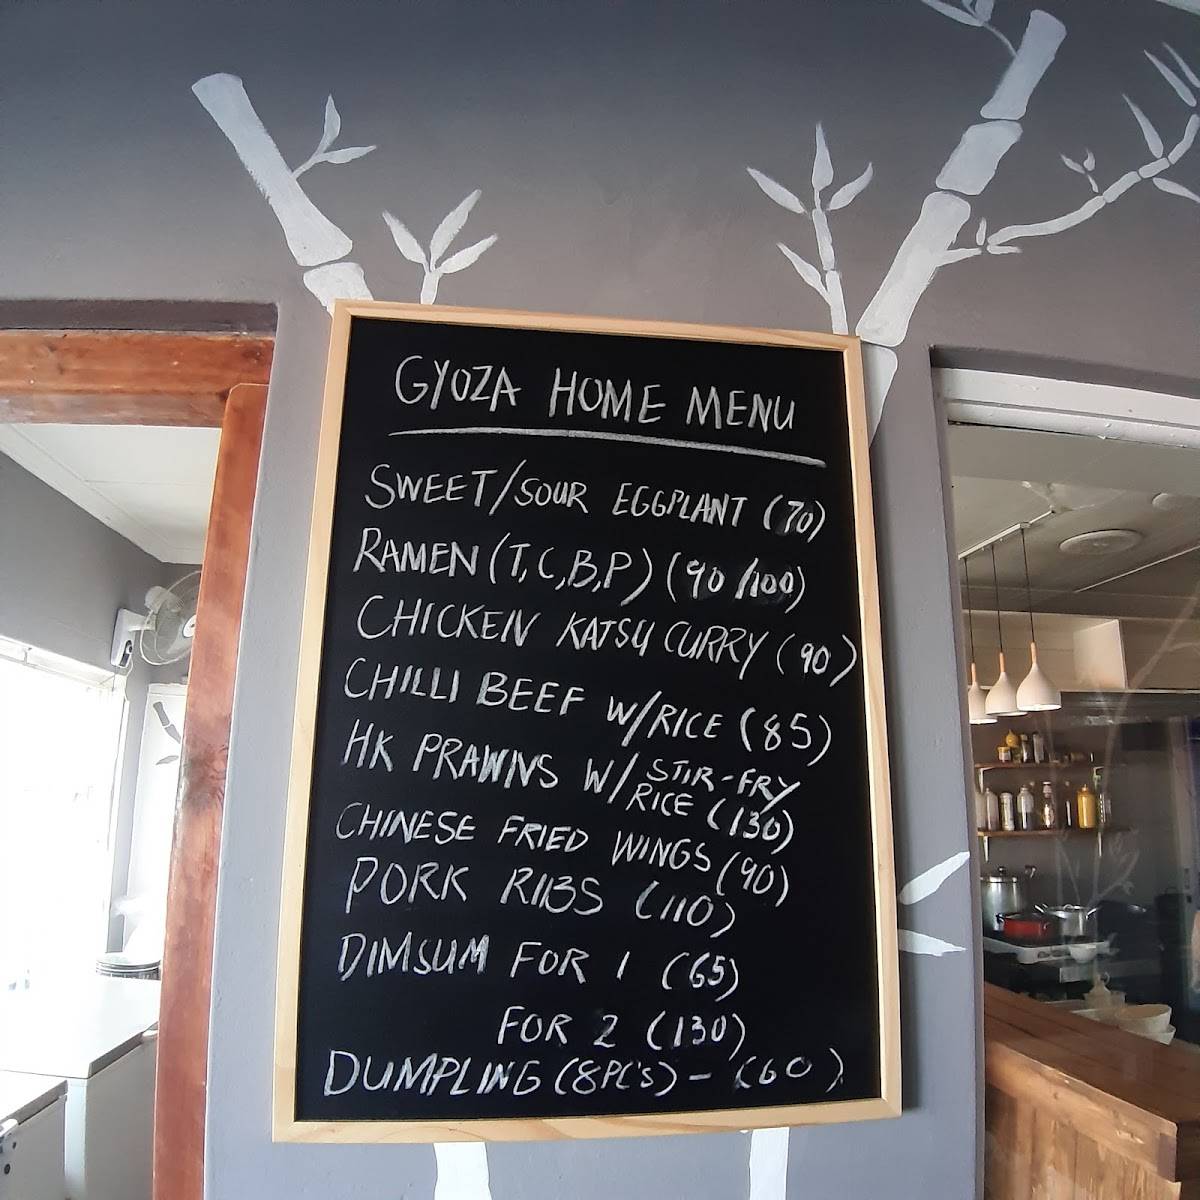 GYOZA HOME MENU
SWEET/SOUR EGGPLANT (70)
RAMEN (T,C,B,P) (90/100)
CHICKEN KATSU CURRY (90)
CHILLI BEEF W/RICE (85)
HK PRAWNS W/ STIR-FRY
RICE (130)
CHINESE FRIED WINGS (90)
PORK RIBS (110)
DIMSUM FOR 1 (65)
FOR 2 (130)
DUMPLING (8PC'S) - (60)